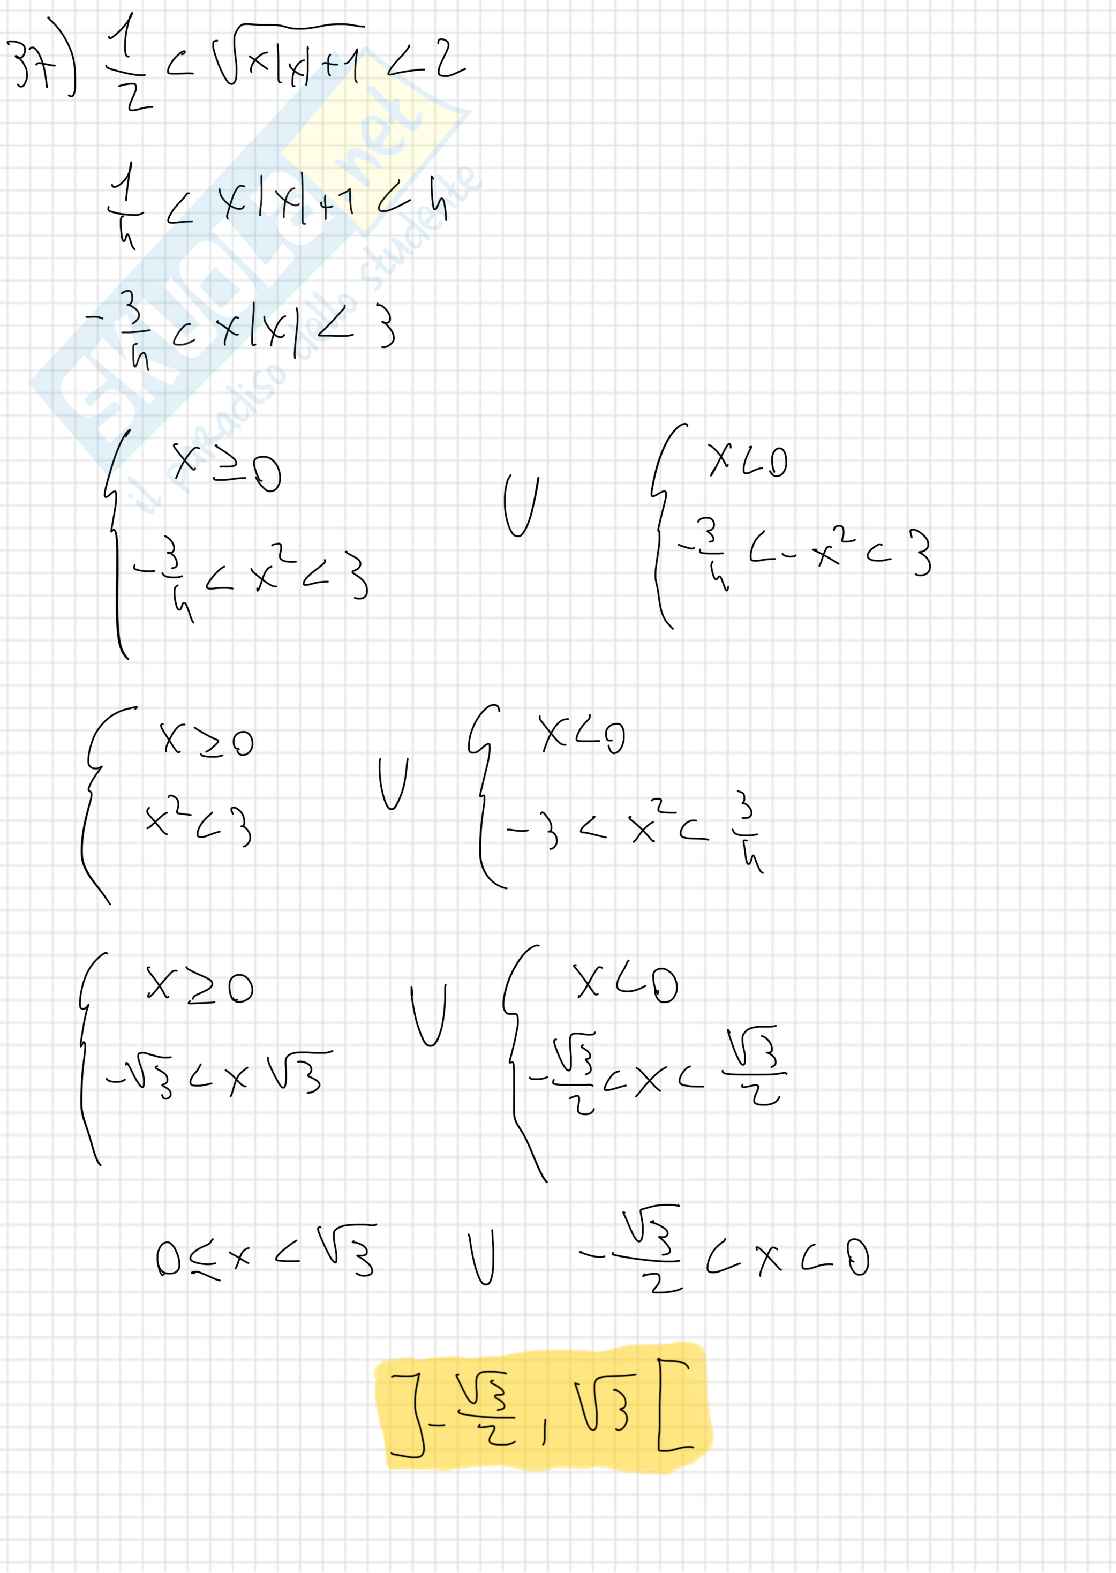 37) 1/2 < √(x|x|+1) < 2
1/4 < x|x|+1 < 4
-3/4 < x|x| < 3
{ x ≥ 0 ∪ { x < 0
-3/4 < x² < 3 -3/4 < -x² < 3
{ x ≥ 0 ∪ { x < 0
x² < 3 -3 < x² < 3/4
{ x ≥ 0 ∪ { x < 0
-√3 < x √3 -√3/2 < x < √3/2
0 ≤ x < √3 ∪ -√3/2 < x < 0
]-√3/2, √3[
SKUOLA.net
il paradiso dello studente